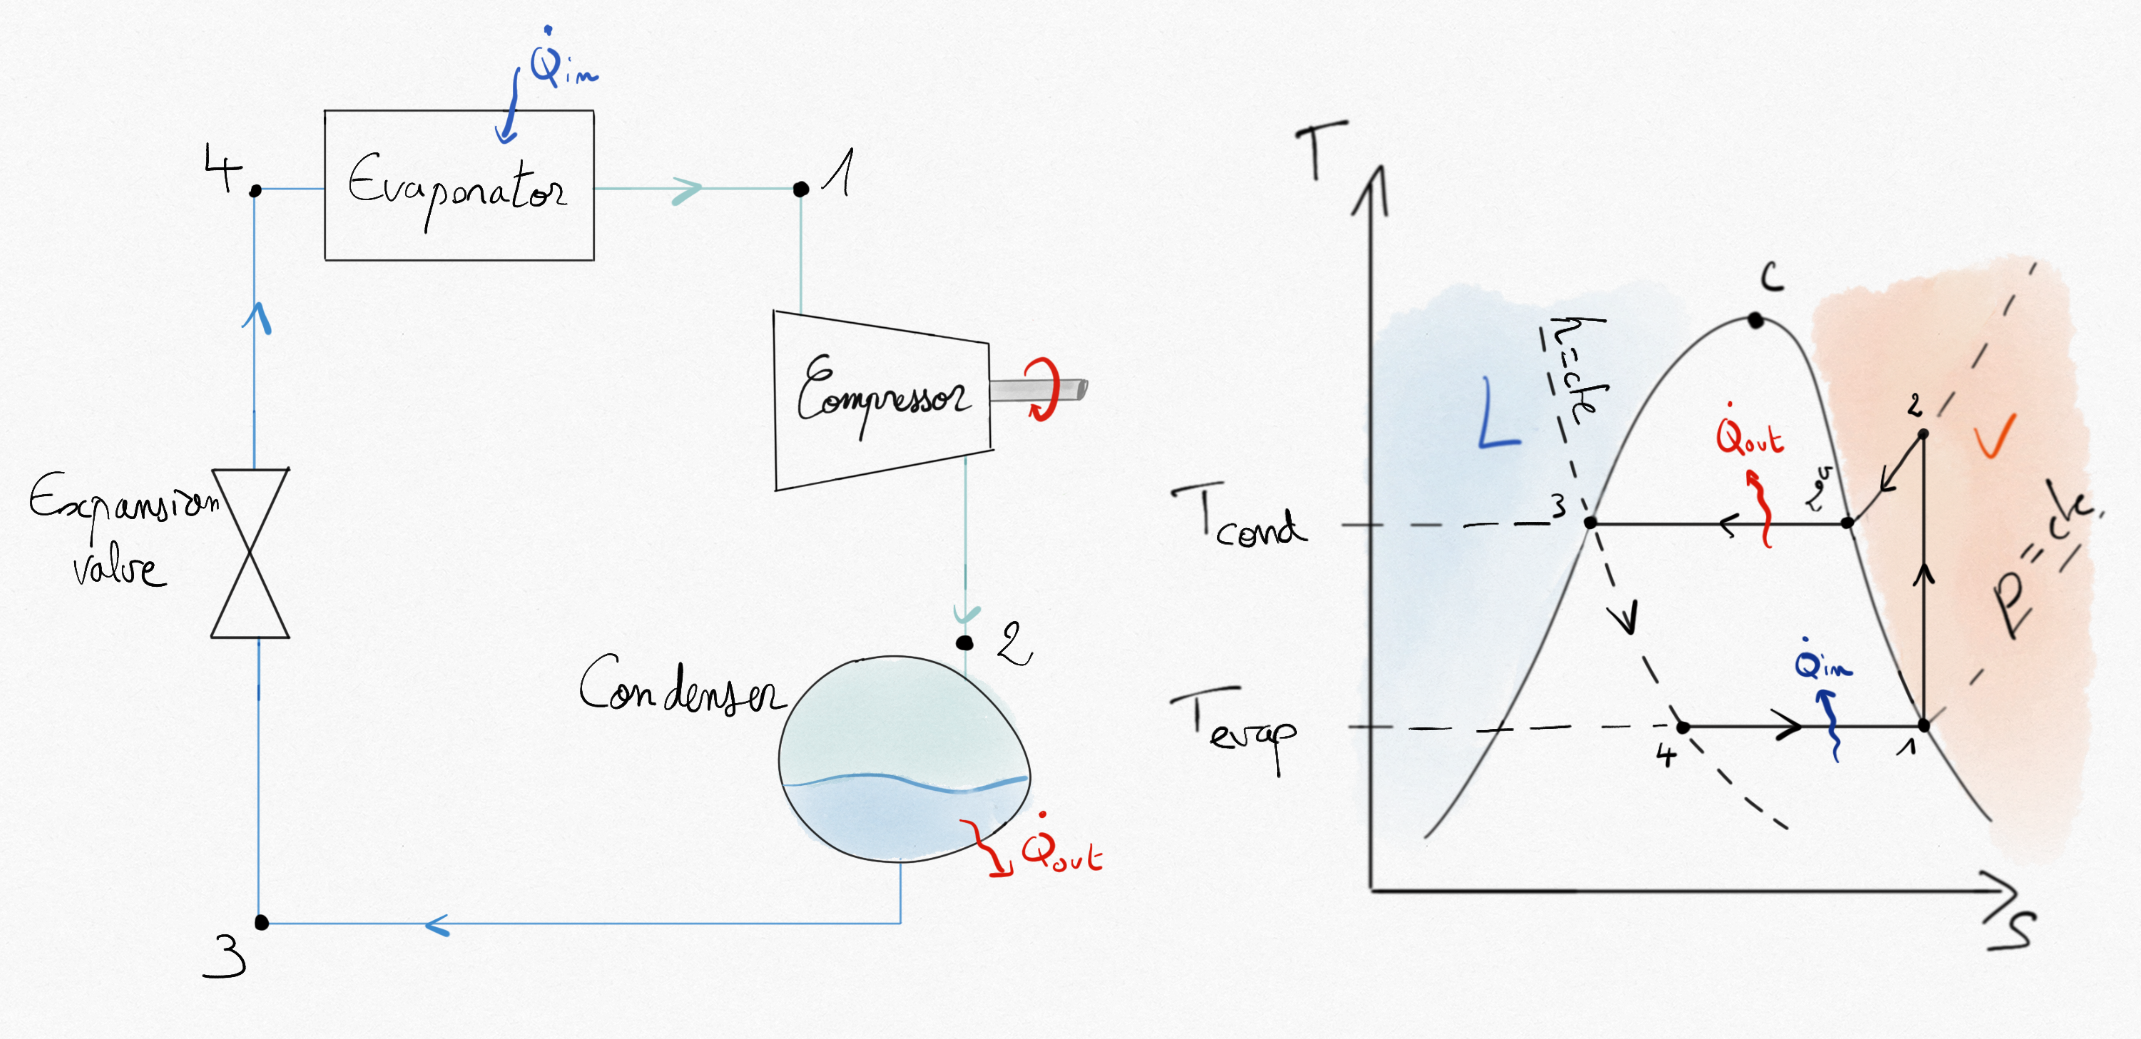 Q̇in
4
Evaporator
1
Compressor
Expansion
valve
2
Condenser
Q̇out
3
T
C
h=cte
L
2
V
Q̇out
Tcond
3
2v
P=cte.
Q̇in
Tevap
4
1
S